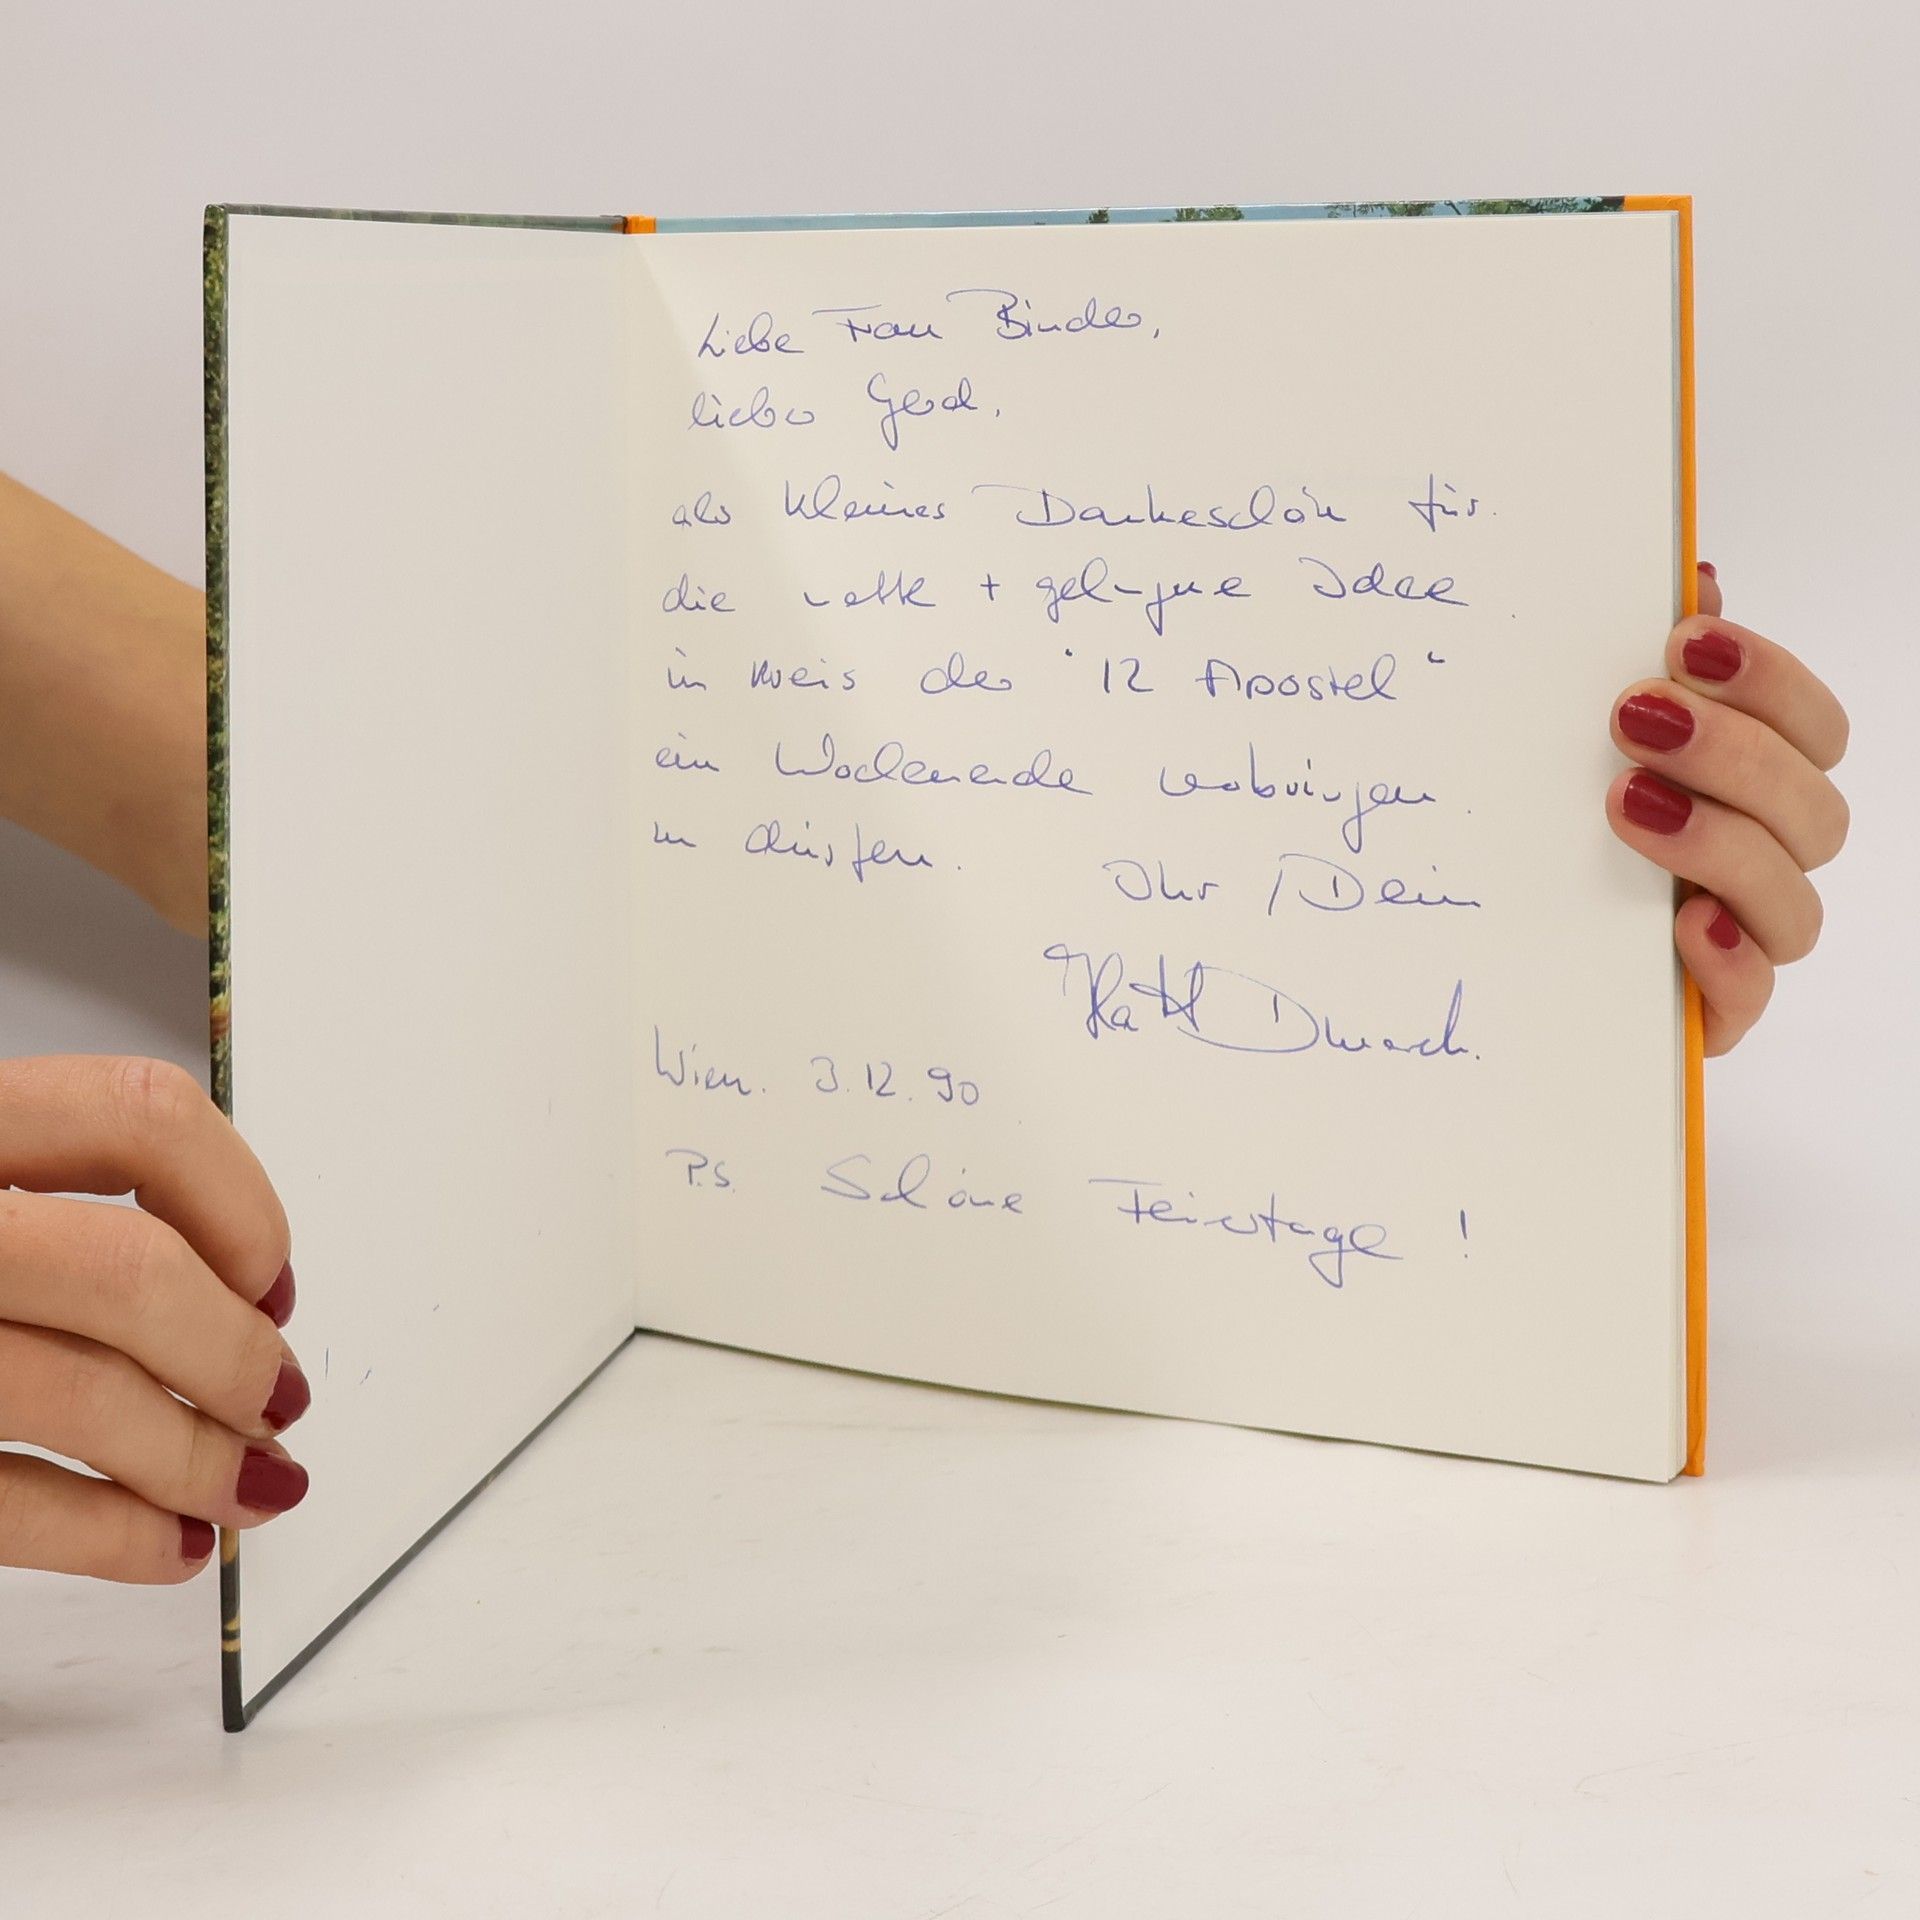 Liebe Frau Binder,
lieber Gerd,
als kleines Dankeschön für
die nette + gelungene Idee
im Kreis der "12 Apostel"
ein Wochenende verbringen
zu dürfen.
Ihr / Dein
Wien. 3.12.90
P.S. Schöne Feiertage!